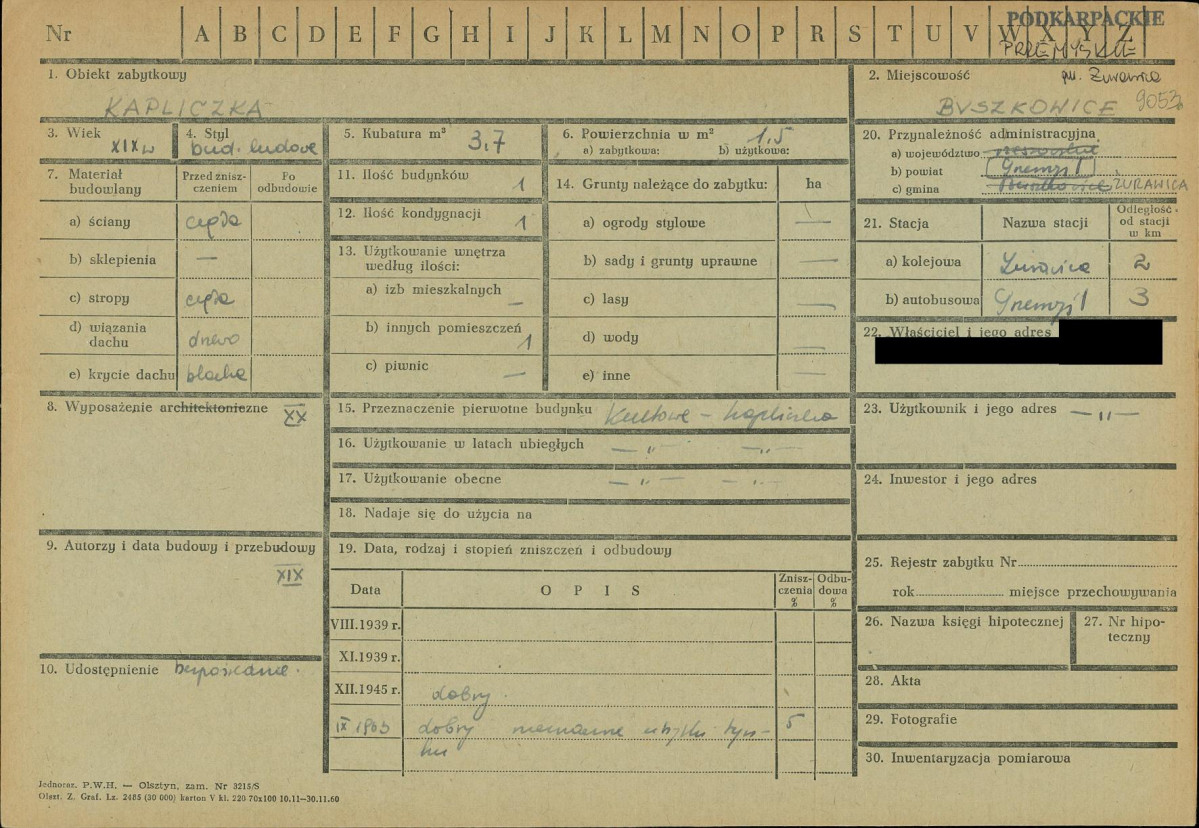 Nr A B C D E F G H I J K L M N O P R S T U V W X Y Z
PODKARPACKIE
PRZEMYSKIE
1. Obiekt zabytkowy
KAPLICZKA
2. Miejscowość gm. Żurawica
BUSZKOWICE 9053
3. Wiek
XIX w
4. Styl
bud. ludowe
5. Kubatura m³
3,7
6. Powierzchnia w m²
1,5
a) zabytkowa: b) użytkowa:
20. Przynależność administracyjna
a) województwo rzeszowskie
b) powiat Przemyśl
c) gmina ŻURAWICA
7. Materiał budowlany
Przed zniszczeniem
Po odbudowie
a) ściany cegła
b) sklepienia —
c) stropy cegła
d) wiązania dachu drewo
e) krycie dachu blacha
11. Ilość budynków 1
12. Ilość kondygnacji 1
13. Użytkowanie wnętrza
według ilości:
a) izb mieszkalnych —
b) innych pomieszczeń 1
c) piwnic —
14. Grunty należące do zabytku: ha
a) ogrody stylowe —
b) sady i grunty uprawne —
c) lasy —
d) wody —
e) inne —
21. Stacja
Nazwa stacji
Odległość od stacji w km
a) kolejowa Żurawica 2
b) autobusowa Przemyśl 3
22. Właściciel i jego adres
8. Wyposażenie architektoniczne
XX
15. Przeznaczenie pierwotne budynku Kultowe – kapliczka
16. Użytkowanie w latach ubiegłych — „ — — „ —
17. Użytkowanie obecne — „ — — „ —
18. Nadaje się do użycia na
23. Użytkownik i jego adres — „ —
24. Inwestor i jego adres
9. Autorzy i data budowy i przebudowy
XIX
10. Udostępnienie bezpośrednie.
19. Data, rodzaj i stopień zniszczeń i odbudowy
Data
O P I S
Zniszczenia %
Odbudowa %
VIII.1939 r.
XI.1939 r.
XII.1945 r. dobry.
IX 1963 dobry nieznaczne ubytki tyn- 5
ku
25. Rejestr zabytku Nr
rok miejsce przechowywania
26. Nazwa księgi hipotecznej
27. Nr hipoteczny
28. Akta
29. Fotografie
30. Inwentaryzacja pomiarowa
Jednoraz. P.W.H. — Olsztyn, zam. Nr 3215/S
Olszt. Z. Graf. Lz. 2485 (30 000) karton V kl. 220 70x100 10.11—30.11.60